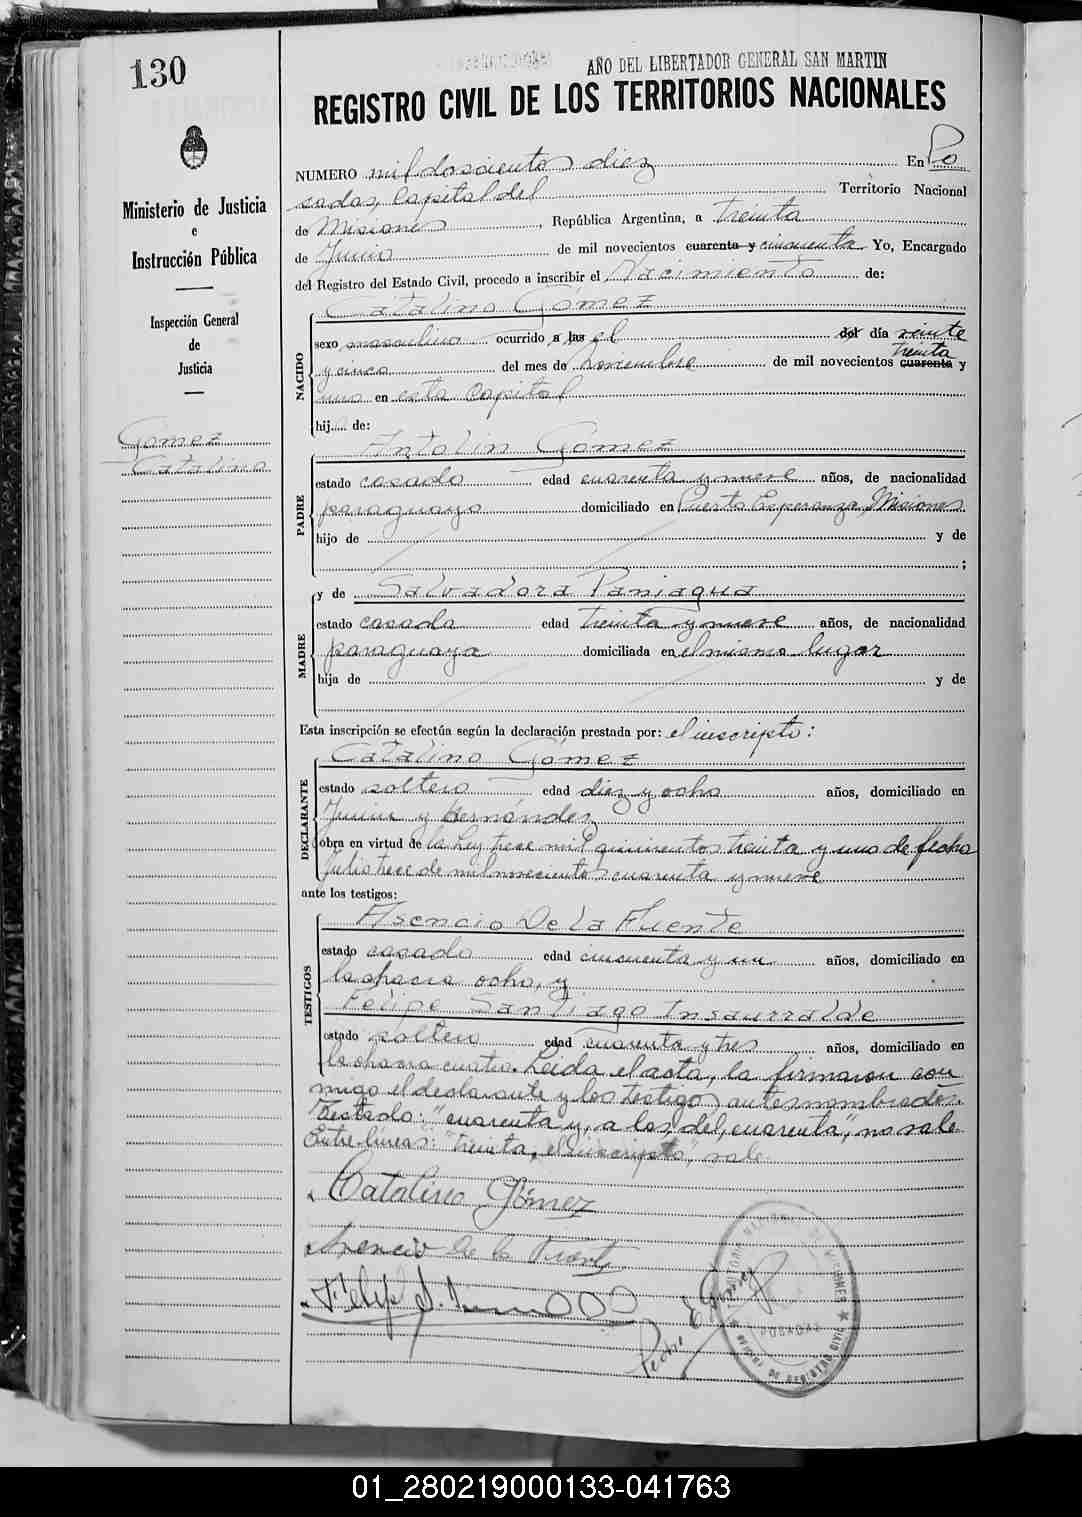 130
AÑO DEL LIBERTADOR GENERAL SAN MARTIN
REGISTRO CIVIL DE LOS TERRITORIOS NACIONALES
Ministerio de Justicia
e
Instrucción Pública
Inspección General
de
Justicia
Gomez
Catalino
NUMERO mil doscientos diez En Po
sadas, Capital del Territorio Nacional
de Misiones, República Argentina, a treinta
de Junio de mil novecientos cuarenta y cincuenta Yo, Encargado
del Registro del Estado Civil, procedo a inscribir el Nacimiento de:
Catalino Gomez
NACIDO
sexo masculino ocurrido a las el del día veinte
treinta
y cinco del mes de Noviembre de mil novecientos cuarenta y
uno en esta Capital
hij..... de:
Antolin Gomez
PADRE
estado casado edad cuarenta y nueve años, de nacionalidad
paraguaya domiciliado en Puerto Esperanza, Misiones
hijo de y de
;
y de Salvadora Paniagua
MADRE
estado casada edad treinta y nueve años, de nacionalidad
paraguaya domiciliada en el mismo lugar
hija de y de
Esta inscripción se efectúa según la declaración prestada por: el inscripto:
Catalino Gómez
DECLARANTE
estado soltero edad diez y ocho años, domiciliado en
Junin y Hernández
obra en virtud de la Ley trece mil quinientos treinta y uno de fecha
Julio trece de mil novecientos cuarenta y nueve
ante los testigos:
Asencio De la Fuente
TESTIGOS
estado casado edad cincuenta y un años, domiciliado en
la chacra ocho, y
Felipe Santiago Insaurralde
estado soltero edad cuarenta y tres años, domiciliado en
la chacra cuatro. Leida el acta, la firmaron con
migo el declarante y los testigos antesnombrados.
Testado: "cuarenta y, a las, del, cuarenta", no vale
Entre lineas: "treinta, el inscripto", vale.
Catalino Gómez
Asencio de la Fuente
Felipe S.
Pedro E.
POSADAS
REGISTRO CIVIL
01_280219000133-041763